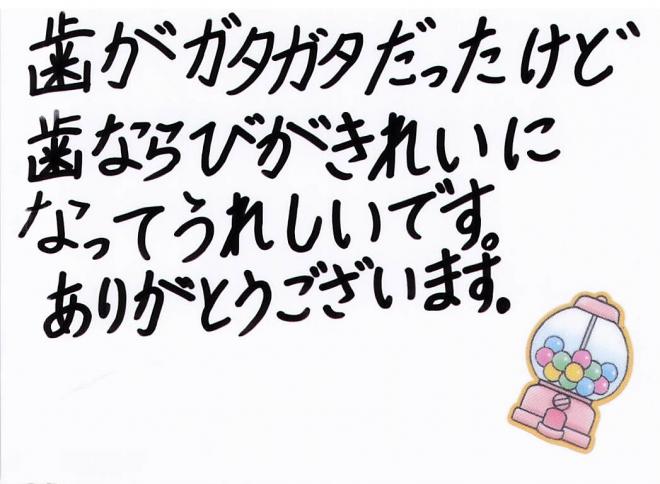 歯がガタガタだったけど
歯ならびがきれいに
なってうれしいです。
ありがとうございます。